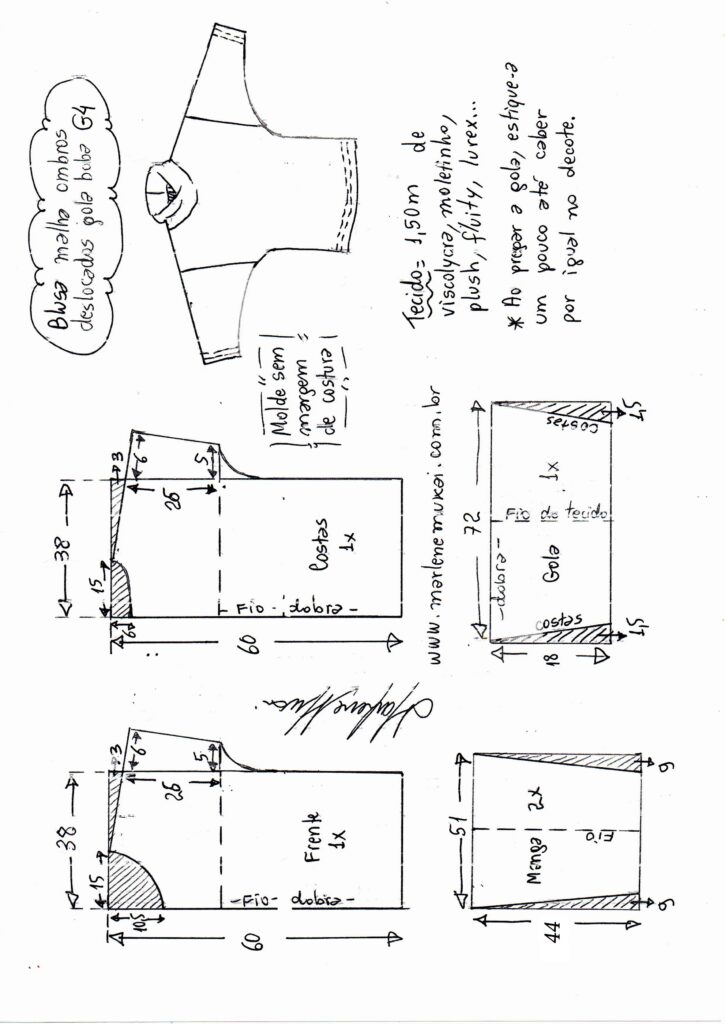 Blusa malha ombros
deslocados gola boba G4
Molde sem
margem
de costura
Tecido = 1,50m de
viscolycra, moletinho,
plush, fluity, lurex...
* Ao pregar a gola, estique-a
um pouco até caber
por igual no decote.
38
15
3
6
26
5
10,5
60
Frente
1x
-Fio- dobra-
38
15
3
6
26
5
6
60
Costas
1x
-Fio- dobra-
www.marlenemukai.com.br
51
44
Manga 2x
Fio
6
6
72
18
-dobra-
Gola 1x
Fio do tecido
costas
costas
1,5
1,5